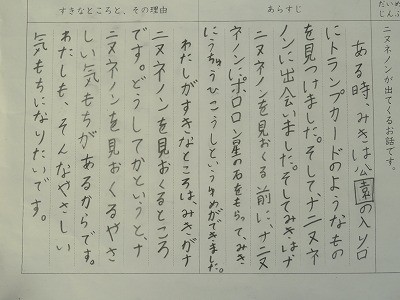 だいめ
じんぶ
ニヌネノンが出てくるお話です。
あらすじ
ある時、みきは公園の入り口
にトランプカードのようなもの
を見つけました。そして、ナニヌネ
ノンに出会いました。そしてみきはナ
ニヌネノンを見おくる前に、ナニヌ
ネノンに、ポロロン星の石をもらって、みき
にうちゅうひこうしというゆめができました。
すきなところと、その理由
わたしがすきなところは、みきがナ
ニヌネノンを見おくるところ
です。どうしてかというと、ナ
ニヌネノンを見おくるやさ
しい気もちがあるからです。
わたしも、そんなやさしい
気もちになりたいです。